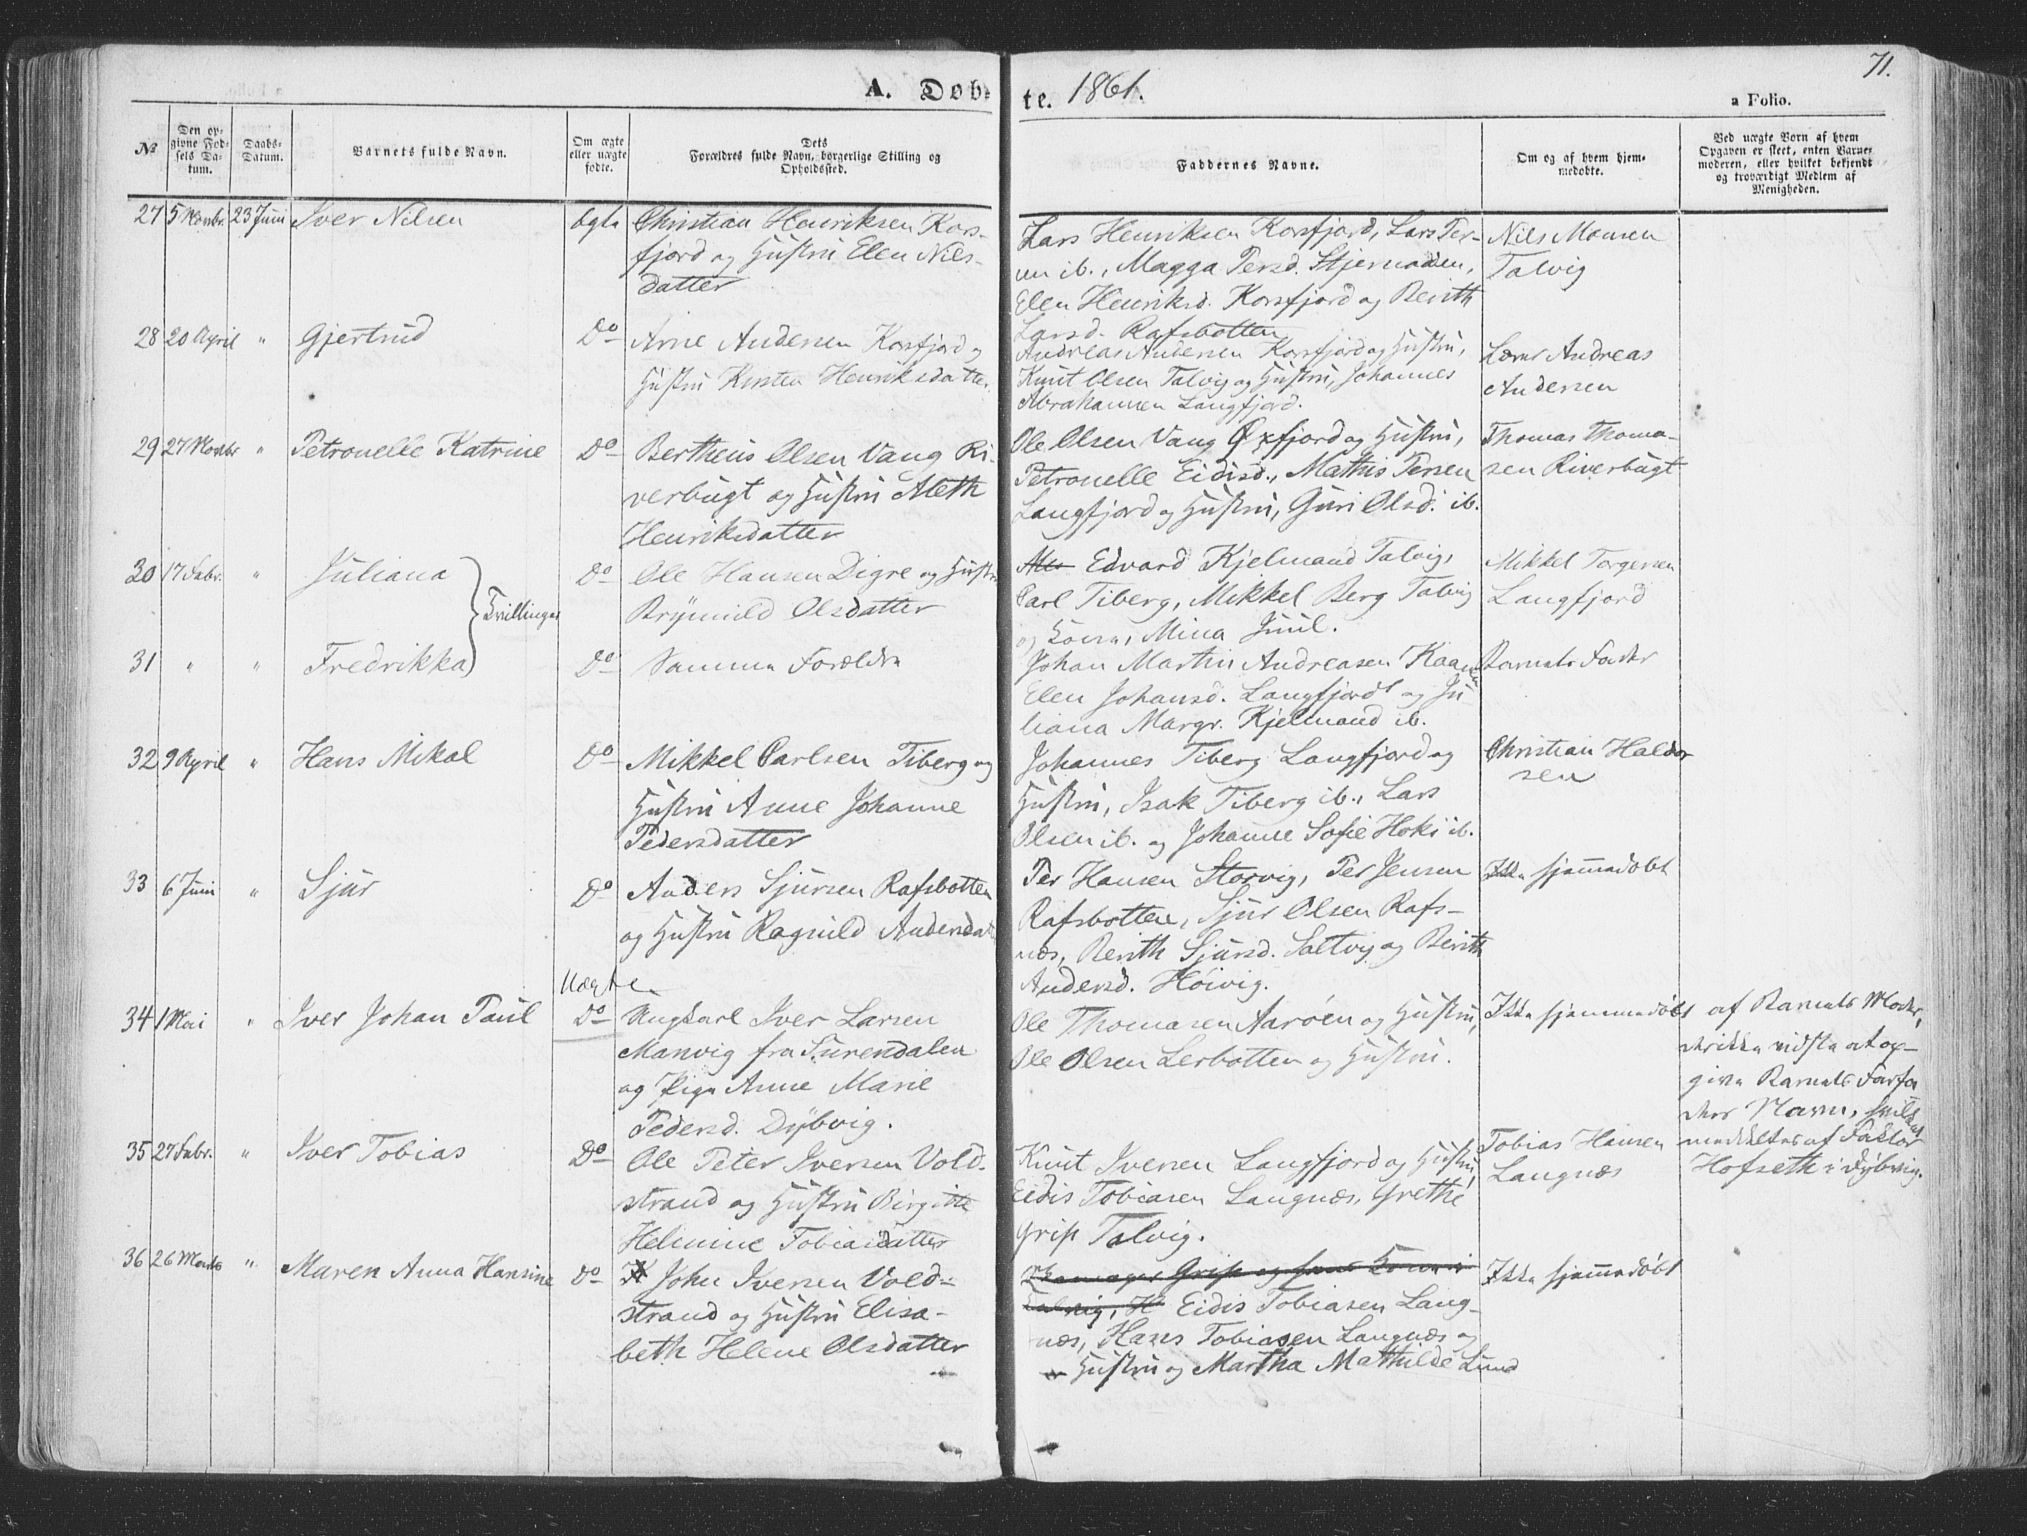 71.
A. Døbte. 1861.
a Folio.
№
Den opgivne Fødsels Datum.
Daabs-Datum.
Barnets fulde Navn.
Om ægte eller uægte fødte.
Dets Forældres fulde Navn, borgerlige Stilling og Opholdssted.
Faddernes Navne.
Om og af hvem hjemmedøbte.
Ved uægte Børn af hvem Opgaven er skeet, enten Barnemoderen, eller hvilket bekjendt og troværdigt Medlem af Menigheden.
27 23 Juni Iver Nilsen Ægte
Christian Henriksen Kors-
fjord og Hustru Elen Nils-
datter
Lars Henriksen Korsfjord, Lars Per-
sen ib., Magga Persd. Stjernodden,
Elen Henriksd. Korsfjord og Berith
Larsd. Rafsbotten
Nils Monsen
Talvig
28 20 April " Gjertrud Do
Arne Andersen Korsfjord og
Hustru Kirsten Henriksdatter.
Andreas Andersen Korsfjord og Hustru,
Knut Olsen Talvig og Hustru, Johannes
Abrahamsen Langfjord.
Lærer Andreas
Andersen
29 27 " Petronelle Katrine Do
Bertheus Olsen Vang Ri-
verbugt og Hustru Aleth
Henriksdatter
Ole Olsen Vang Øxfjord og Hustru,
Petronelle Eidisd., Mathis Persen
Langfjord og Hustru, Guri Olsd. ib.
Thomas Thoma-
sen Riverbugt
30 17 Febr. " Juliana Do
Tvillinger
Ole Hansen Digre og Hustru
Brynnild Olsdatter
Edvard Kjelmand Talvig,
Carl Tiberg, Mikkel Berg Talvig
og Kone, Mina Juul.
Mikkel Torgersen
Langfjord
31 " " Fredrikka Do
Samme Forældre
Johan Martin Andreasen
Elen Johansd. Langfjord og Ju
liana Margr. Kjelmand ib.
Barnets Fader
32 9 April " Hans Mikal Do
Mikkel Carlsen Tiberg og
Hustru Anne Johanne
Pedersdatter
Johannes Tiberg Langfjord og
Hustru, Isak Tiberg ib., Lars
Olsen ib. og Johanne Sofie ib.
Christian Haldor
sen
33 6 Juni " Sjur Do
Anders Sjursen Rafsbotten
og Hustru Ragnild
Per Hansen Storvig, Per Jensen
Rafsbotten, Sjur Olsen Rafs-
næs, Berith Sjursd. Saltvig og Berith
Andersd. Høivig.
Ikke hjemmedøbt
Uægte
34 1 Mai " Iver Johan Paul Do
Ungkarl Iver Larsen
Manvig fra Surendalen
og Pige Anne Marie
Pedersd. Dybvig.
Ole Thomasen Aarøen og Hustru,
Ole Olsen Lerbotten og Hustru.
Ikke hjemmedøbt
af Barnets Moder,
der ikke vidste at op-
give Barnets Farfa
ders Navn,
meddeltes af Faktor
Hofseth i Dybvig.
35 27 Febr. " Iver Tobias Do
Ole Peter Iversen Vold-
strand og Hustru Birgitte
Helmine Tobiasdatter
Knut Iversen Langfjord og Hustru,
Eidis Tobiasen Langnæs, Grethe
Grip Talvig.
Tobias Hansen
Langnæs
36 26 Marts " Maren Anna Hansine Do
John Iversen Vold-
strand og Hustru Elisa-
beth Helene Olsdatter
Eidis Tobiasen Lang-
næs, Hans Tobiasen Langnæs og
Hustru og Martha Mathilde Lund
Ikke hjemmedøbt